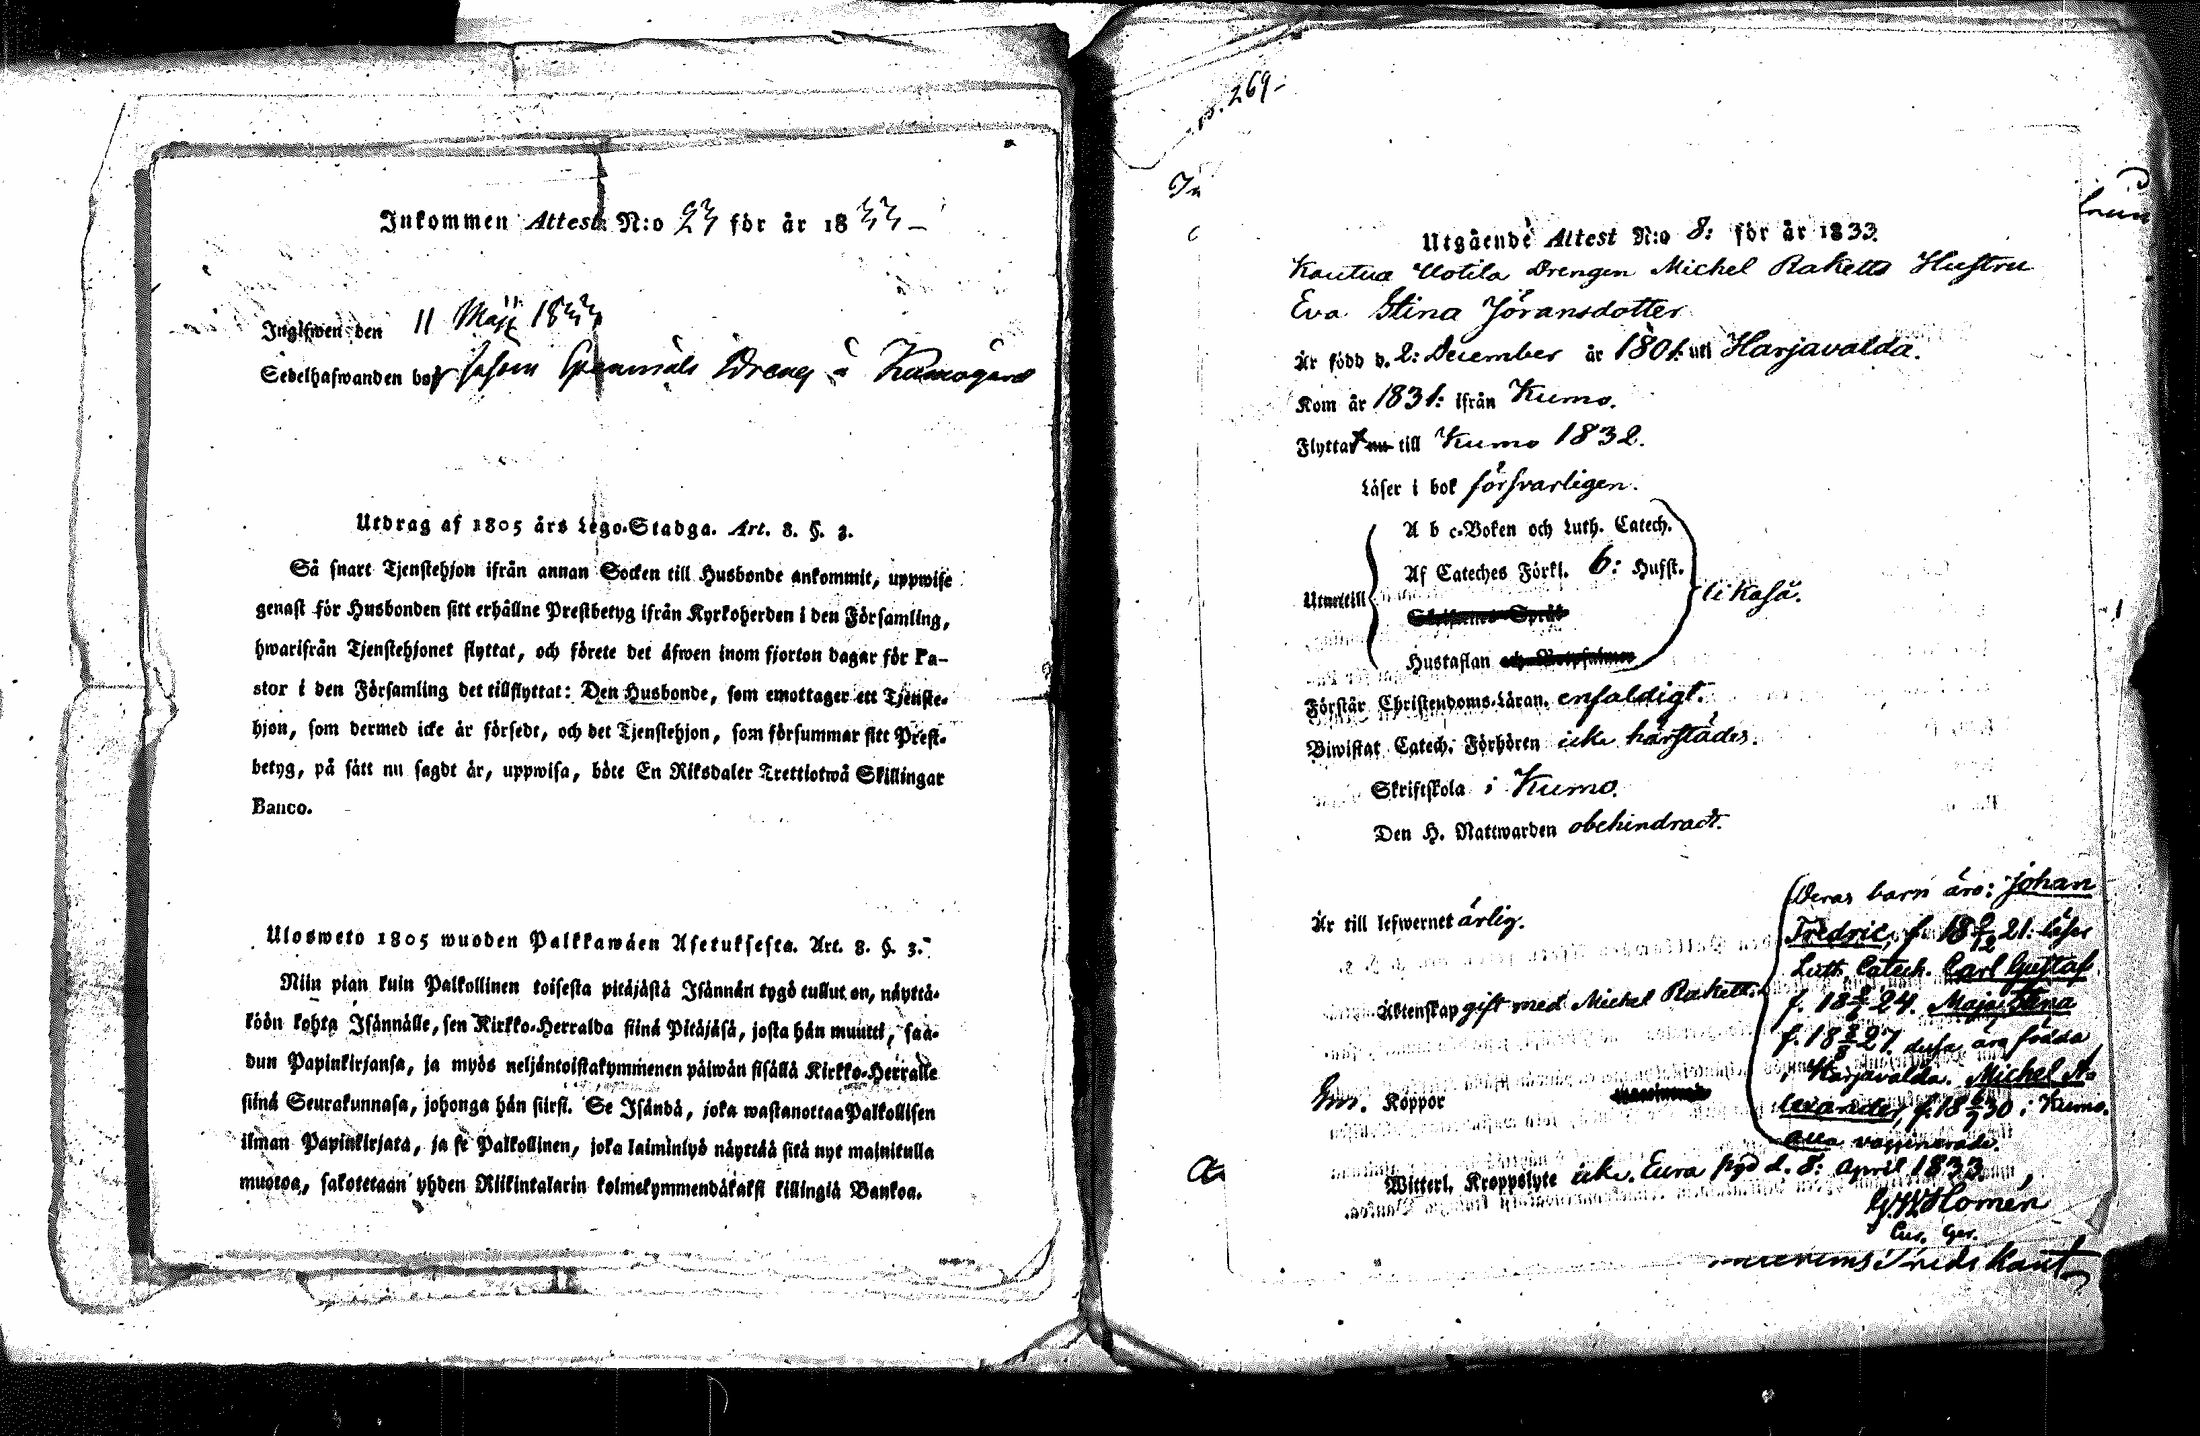 Inkommen Attest N:o 23 för år 1833
Ingifwen den 11 Maji 1833
Sedelhafwanden bor Drang å Kumogård
Utdrag af 1805 års Lego-Stadga. Art. 8. §. 3.
Så snart Tjenstehjon ifrån annan Socken till Husbonde ankommit, uppwise
genast för Husbonden sitt erhållne Prestbetyg ifrån Kyrkoherden i den Församling,
hwarifrån Tjenstehjonet flyttat, och förete det äfwen inom fjorton dagar för Pa-
stor i den Församling det tillflyttat: Den Husbonde, som emottager ett Tjenste-
hjon, som dermed icke är försedt, och det Tjenstehjon, som försummar sitt Prest-
betyg, på sätt nu sagdt är, uppwisa, böte En Riksdaler Trettiotwå Skillingar
Banco.
Ulosweto 1805 wuoden Palkkawäen Asetuksesta. Art. 8. §. 3.
Niin pian kuin Palkollinen toisesta pitäjästä Isännän tygö tullut on, näyttä-
köön kohta Isännälle, sen Kirkko-Herralda siinä Pitäjäsä, josta hän muutti, saa-
dun Papinkirjansa, ja myös neljäntoistakymmenen päiwän sisällä Kirkko-Herralle
siinä Seurakunnasa, johonga hän siirsi. Se Isändä, joka wastanottaa Palkollisen
ilman Papinkirjata, ja se Palkollinen, joka laiminlyö näyttää sitä nyt mainitulla
muotoa, sakotetaan yhden Riikintalarin kolmekymmendäkaksi killingiä Bankoa.
p. 269
Utgående Attest N:o 8: för år 1833.
Kautua Uotila Drengen Michel Raketts Hustru
Eva Stina Jöransdotter
Är född d. 2: December år 1801: uti Harjavalda.
Kom år 1831: ifrån Kumo.
Flyttat nu till Kumo 1832.
Läser i bok försvarligen.
A b c-Boken och Luth. Catech.
Af Cateches Förkl. 6: Hufst.
Utantill likaså.
Skriftenes Språk
Hustaflan och Botpsalmer
Förstår Christendoms-Läran. enfaldigt.
Biwistat Catech. Förhören icke härstädes.
Skriftskola i Kumo.
Den H. Nattwarden obehindradt.
Är till lefwernet ärlig.
Äktenskap gift med Michel Rakett.
Deras barn äro: Johan
Fredric, f. 18 9/12 21: läser
Luth. Catech. Carl Gustaf
f. 18 24. Maja Stina
f. 18 27 dessa äro födda
i Harjavalda. Michel A-
lexander, f. 18 30 i Kumo.
alla vaccinerade.
Koppor vaccinerad
Witterl. Kroppslyte icke. Eura pgd d. 8: April 1833.
G. W. Homén
Cur. Ger.